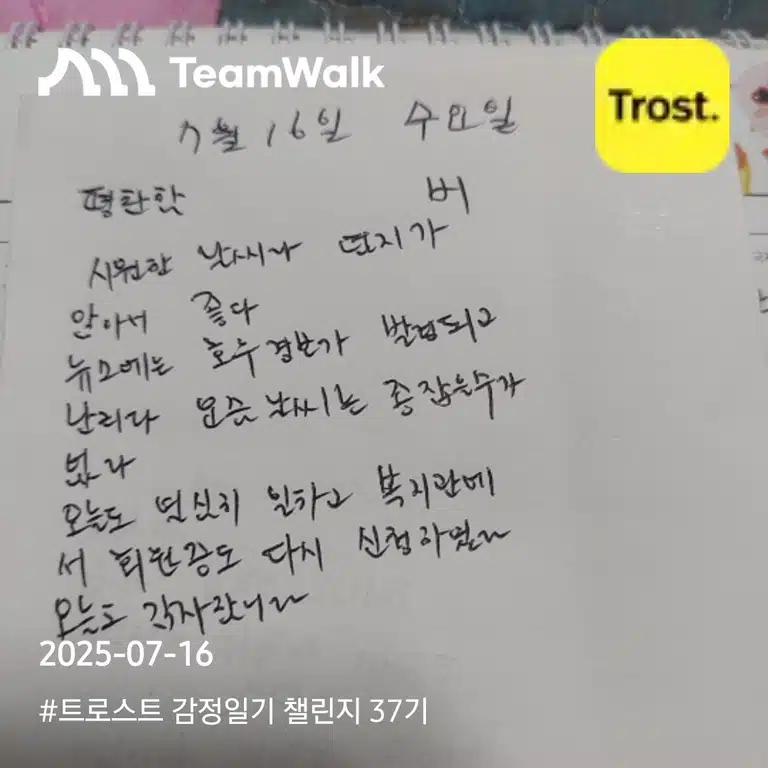 TeamWalk
Trost.
7월 16일 수요일
평탄한 비
시원한 날씨다 먼지가
안아서 좋다
뉴스에는 호우경보가 발령되고
난리다 요즘 날씨는 종잡을수가
없다
오늘도 열심히 일하고 복지관에
서 회원증도 다시 신청하였다
오늘도 감사합니다
2025-07-16
#트로스트 감정일기 챌린지 37기